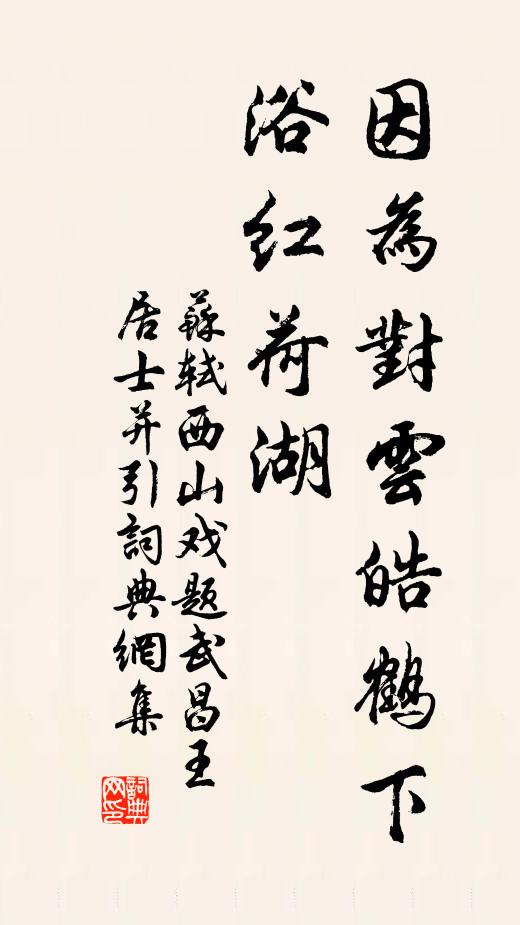 因為對雲皓鶴下
浴红荷湖
蘇軾西山戏题武昌王
居士并引詞典網集
詞典网印